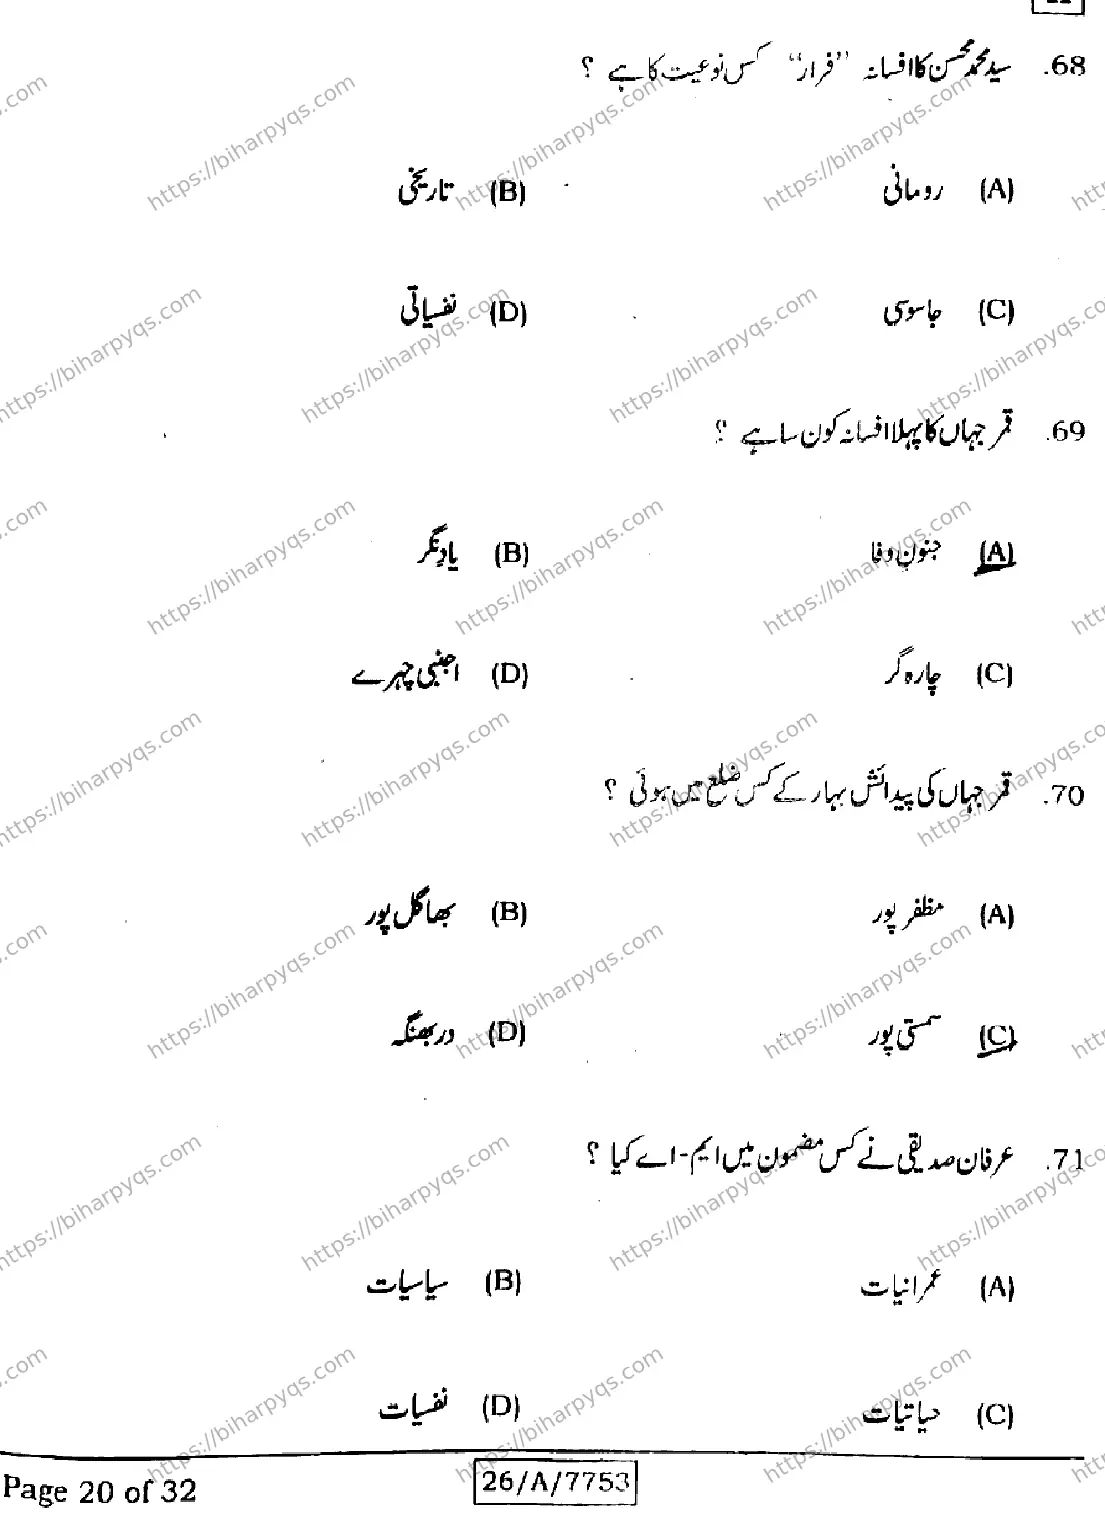 68. سید محمد محسن کا افسانہ "فرار" کس نوعیت کا ہے ؟
(A) رومانی (B) تاریخی
(C) جاسوسی (D) نفسیاتی
69. قمر جہاں کا پہلا افسانہ کون سا ہے ؟
(A) جنون وفا (B) یاد نگر
(C) چارہ گر (D) اجنبی چہرے
70. قمر جہاں کی پیدائش بہار کے کس ضلع میں ہوئی ؟
(A) مظفر پور (B) بھاگل پور
(C) سمستی پور (D) دربھنگہ
71. عرفان صدیقی نے کس مضمون میں ایم-اے کیا ؟
(A) عمرانیات (B) سیاسیات
(C) حیاتیات (D) نفسیات
Page 20 of 32 26/A/7753
https://biharpyqs.com